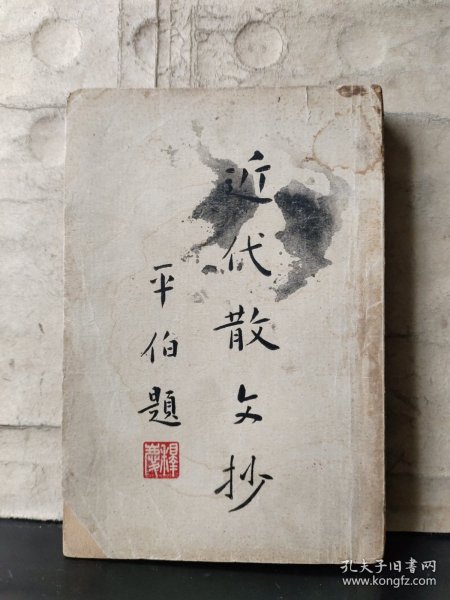 近代散文抄
平伯題
孔夫子旧书网
www.kongfz.com